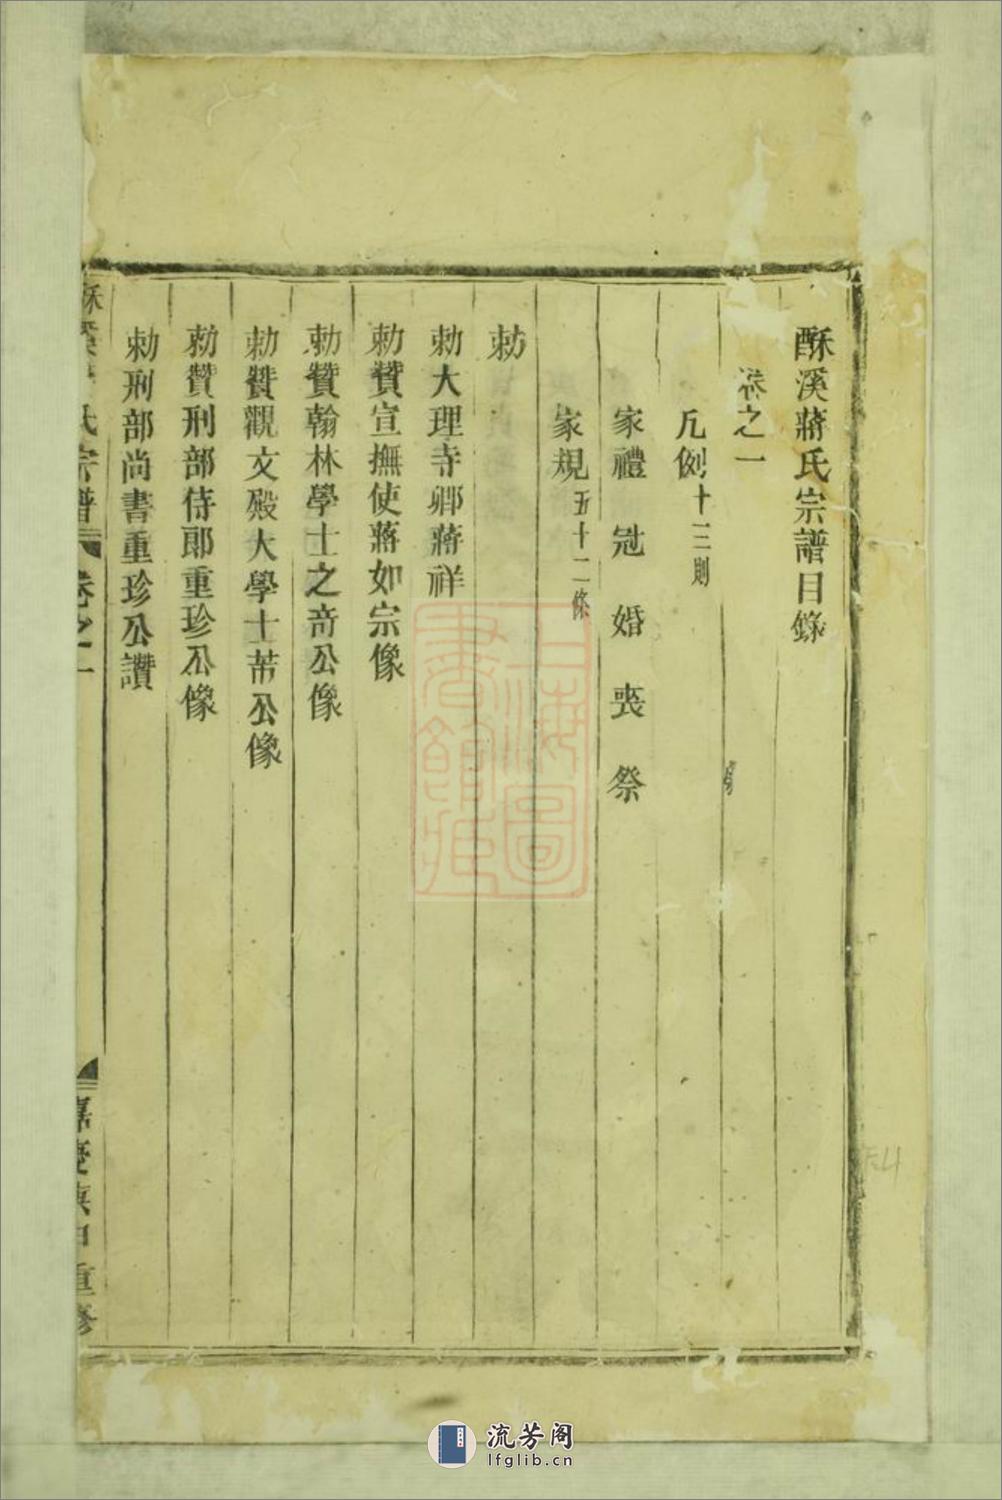 酥溪蔣氏宗譜目錄
卷之一
凡例十三則
家禮 冠 婚 喪 祭
家規五十二條
勅
勅大理寺卿蔣祥
勅贊宣撫使蔣如宗像
勅贊翰林學士之奇公像
勅贊觀文殿大學士芾公像
勅贊刑部侍郎重珍公像
勅刑部尚書重珍公讚
氏宗譜 卷之一 嘉慶 重修
上海圖書館藏
流芳阁
lfglib.cn